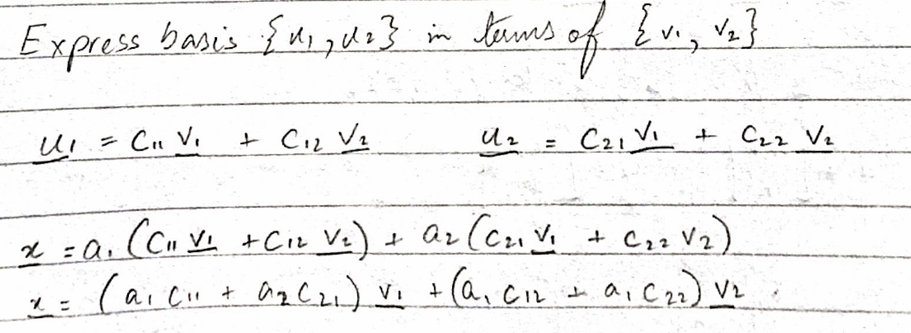 Express basis {u₁, u₂} in terms of {v₁, v₂}
u₁ = C₁₁ v₁ + C₁₂ v₂ u₂ = C₂₁ v₁ + C₂₂ v₂
x = a₁ (C₁₁ v₁ + C₁₂ v₂) + a₂ (C₂₁ v₁ + C₂₂ v₂)
x = (a₁ C₁₁ + a₂ C₂₁) v₁ + (a₁ C₁₂ + a₁ C₂₂) v₂.